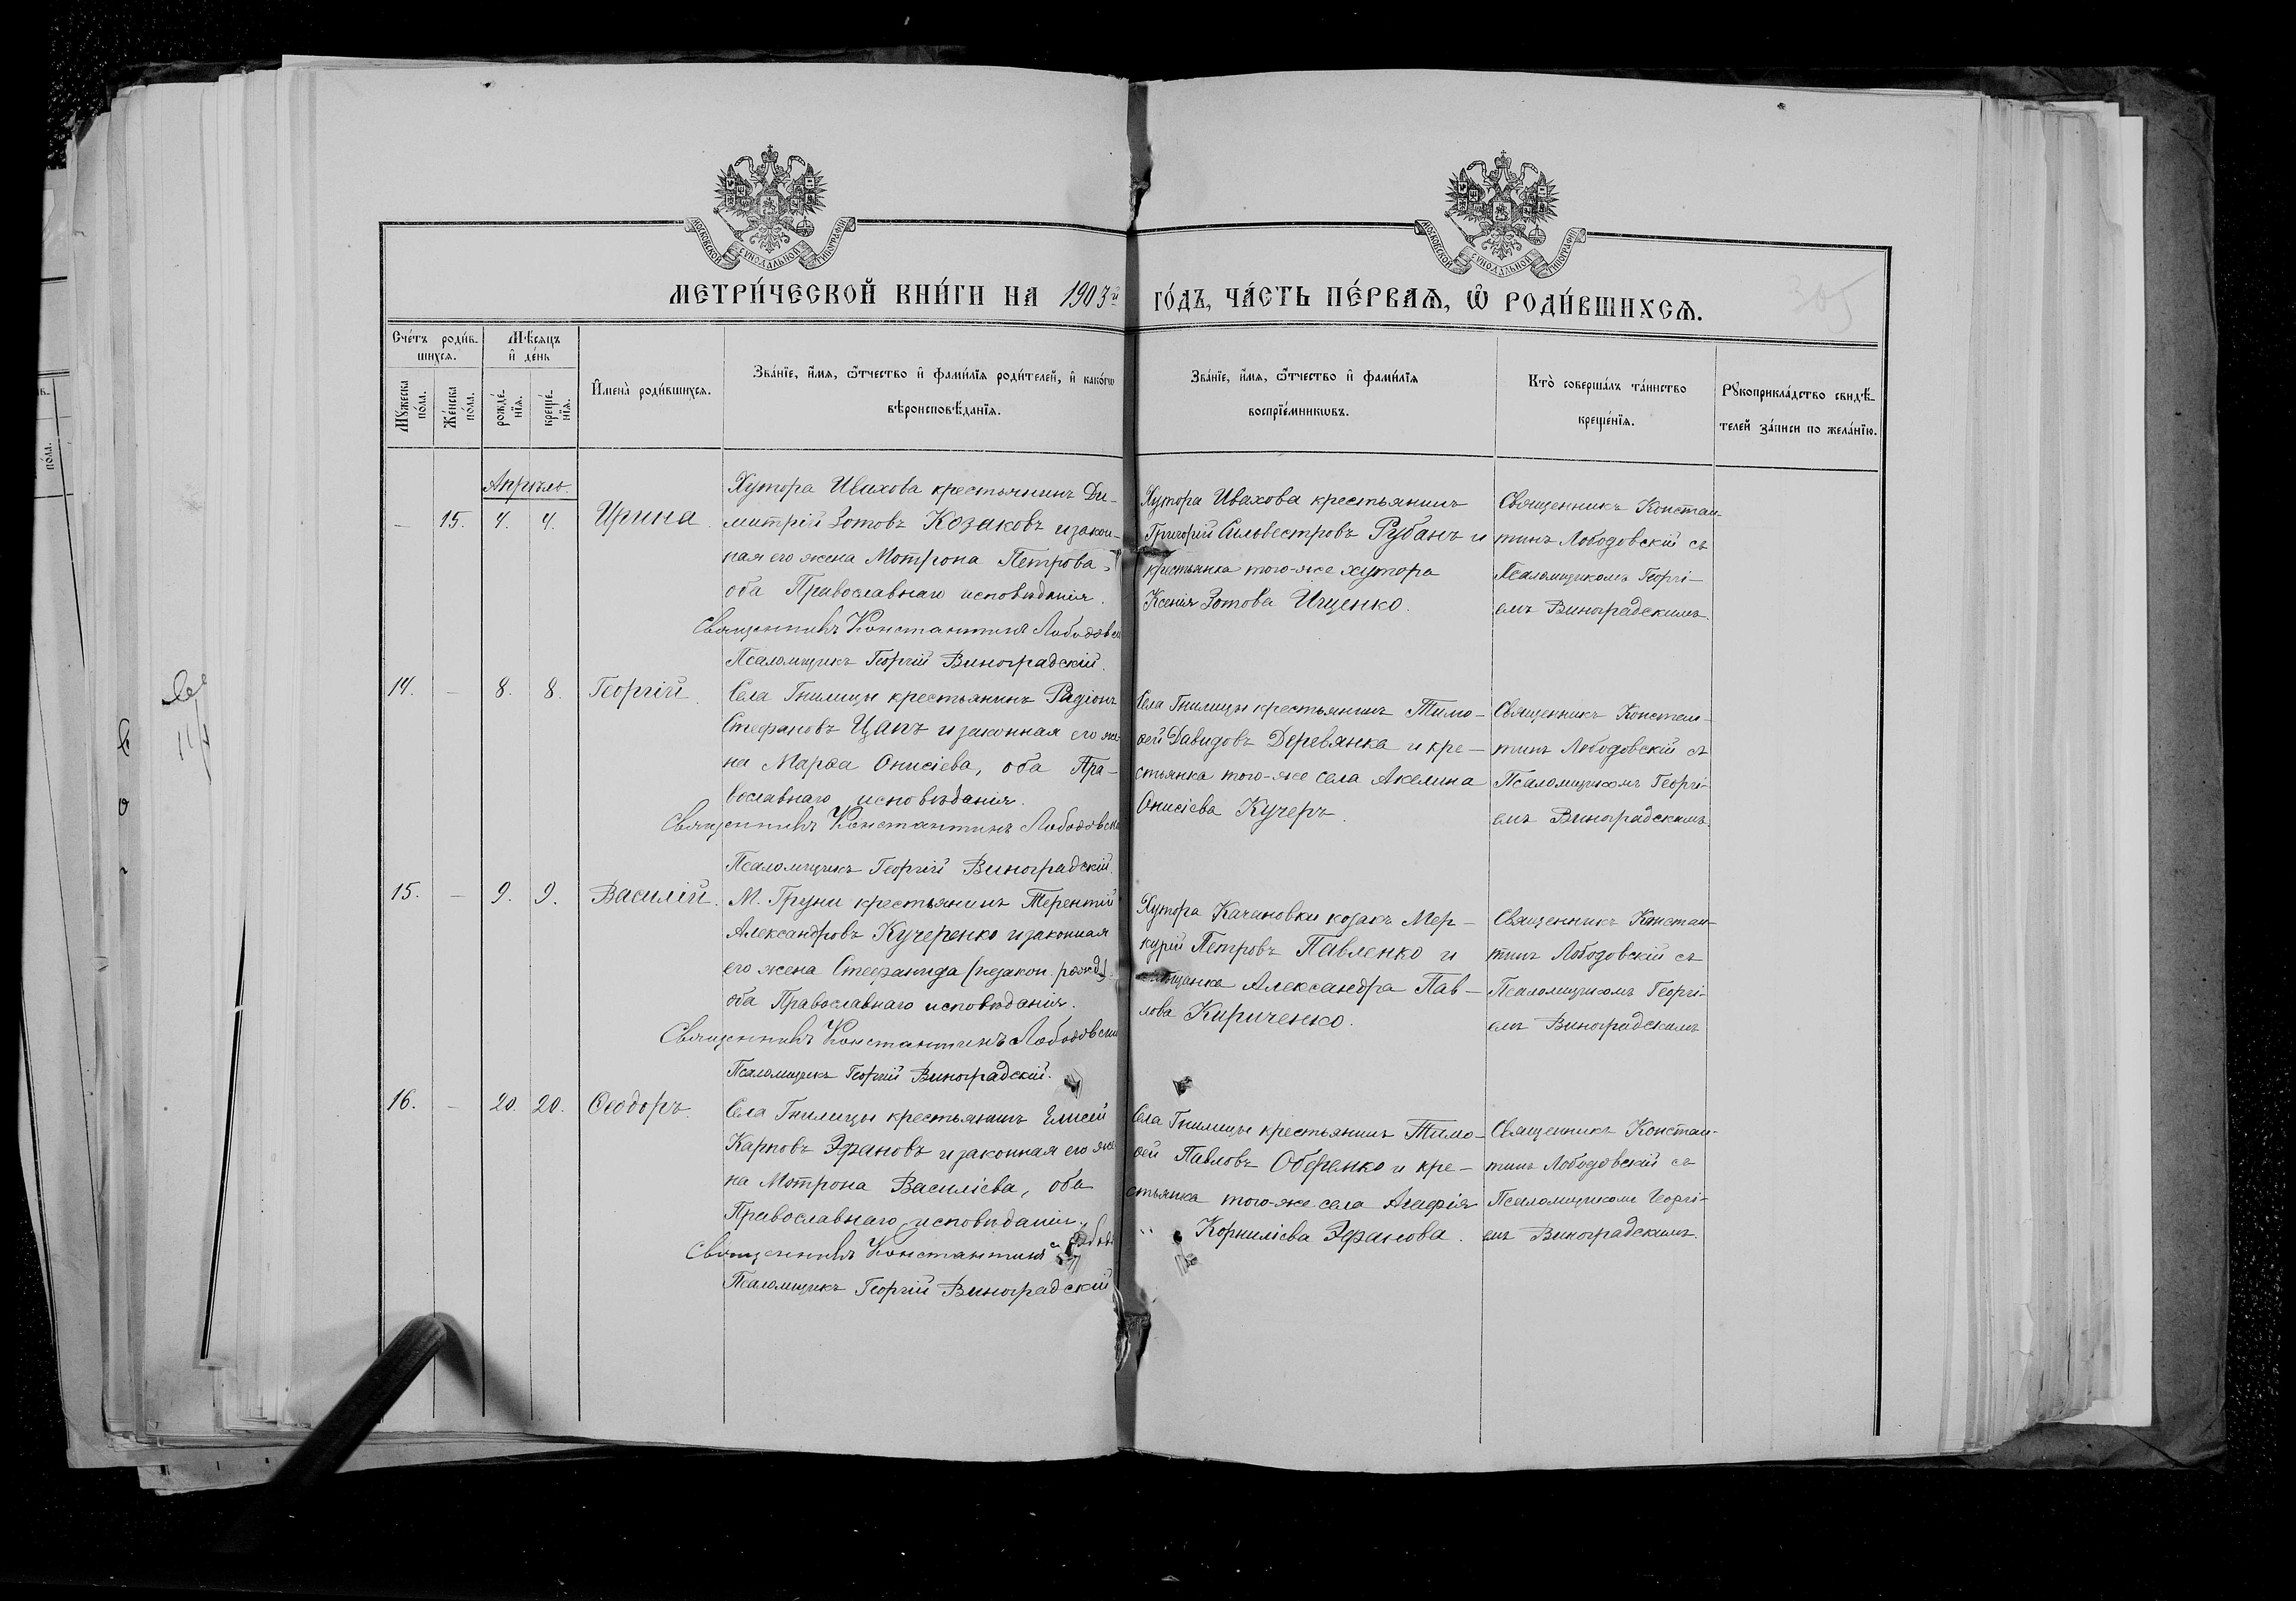 МОСКОВСКОЙ СѴНОДАЛЬНОЙ ТИПОГРАФІИ
МОСКОВСКОЙ СѴНОДАЛЬНОЙ ТИПОГРАФІИ
МЕТРИ́ЧЕСКОЙ КНИ́ГИ НА 1903й ГО́ДЪ, ЧА́СТЬ ПЕ́РВАѦ, Ѡ҆ РОДИ́ВШИХСѦ.
305
Сче́тъ роди́в-
шихсѧ.
Мѣ́сѧцъ
и҆ де́нь
И҆мена̀ роди́вшихсѧ.
Зва́нїе, и҆́мѧ, ѻ҆́тчество и҆ фами́лїѧ роди́телей, и҆ како́гѡ
вѣроисповѣ́данїѧ.
Зва́нїе, и҆́мѧ, ѻ҆́тчество и҆ фами́лїѧ
воспрїе́мникѡвъ.
Кто̀ соверша́лъ та́инство
креще́нїѧ.
Рꙋкоприкла́дство свидѣ́-
телей за́писи по жела́нїю.
Мꙋ́жеска
по́ла.
Же́нска
по́ла.
рожде́-
нїѧ.
креще́-
нїѧ.
Апрѣль.
— 15. 4. 4. Ирина.
Хутора Ивахова крестьянинъ Ди-
митрій Зотовъ Козаковъ и закон-
ная его жена Мотрона Петрова,
оба Православнаго исповѣданія.
Священникъ Константинъ Лободовск
Псаломщикъ Георгій Виноградскій.
Хутора Ивахова крестьянинъ
Григорій Сильвестровъ Рубанъ и
крестьянка того-же хутора
Ксенія Зотова Ищенко.
Священникъ Констан-
тинъ Лободовскій съ
Псаломщикомъ Георгі-
емъ Виноградскимъ.
14. — 8. 8. Георгій.
Села Гнилицы крестьянинъ Радіонъ
Стефановъ Цапъ и законная его же-
на Марѳа Онисіева, оба Пра-
вославнаго исповѣданія.
Священникъ Константинъ Лободовск
Псаломщикъ Георгій Виноградскій.
Села Гнилицы крестьянинъ Тимо-
ѳей Давидовъ Деревянка и кре-
стьянка того-же села Акелина
Онисіева Кучеръ.
Священникъ Констан-
тинъ Лободовскій съ
Псаломщикомъ Георгі-
емъ Виноградскимъ.
15. — 9. 9. Василій.
М. Груни крестьянинъ Терентій
Александровъ Кучеренко и законная
его жена Стефанида (незакон. рожд.)
оба Православнаго исповѣданія.
Священникъ Константинъ Лободовски
Псаломщикъ Георгій Виноградскій.
Хутора Качановки козакъ Мер-
курій Петровъ Павленко и
Александра Пав-
лова Кириченко.
Священникъ Констан-
тинъ Лободовскій съ
Псаломщикомъ Георгі-
емъ Виноградскимъ
16. — 20. 20. Ѳеодоръ.
Села Гнилицы крестьянинъ Елисей
Карповъ Эфановъ и законная его же-
на Мотрона Василіева, оба
Православнаго исповѣданія.
Священникъ Константинъ
Псаломщикъ Георгій Виноградскій
Села Гнилицы крестьянинъ Тимо-
ѳей Павловъ Оберемко и кре-
стьянка того-же села Агафія
Корниліева Эфанова.
Священникъ Констан-
тинъ Лободовскій съ
Псаломщикомъ Георгі-
емъ Виноградскимъ.